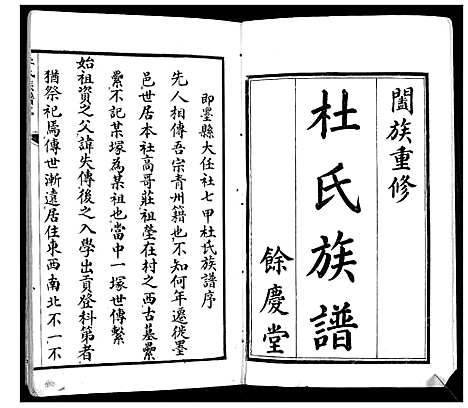 闔族重修
杜氏族譜
餘慶堂
即墨縣大任社七甲杜氏族譜序
先人相傳吾宗青州籍也不知何年遷徙墨
邑世居本社高哥莊祖塋在村之西古墓纍
纍不記某塚為某祖也當中一塚世傳繫
始祖資之父諱失傳後之入學出貢登科第者
猶祭祀焉傳世漸遠居住東西南北不一不